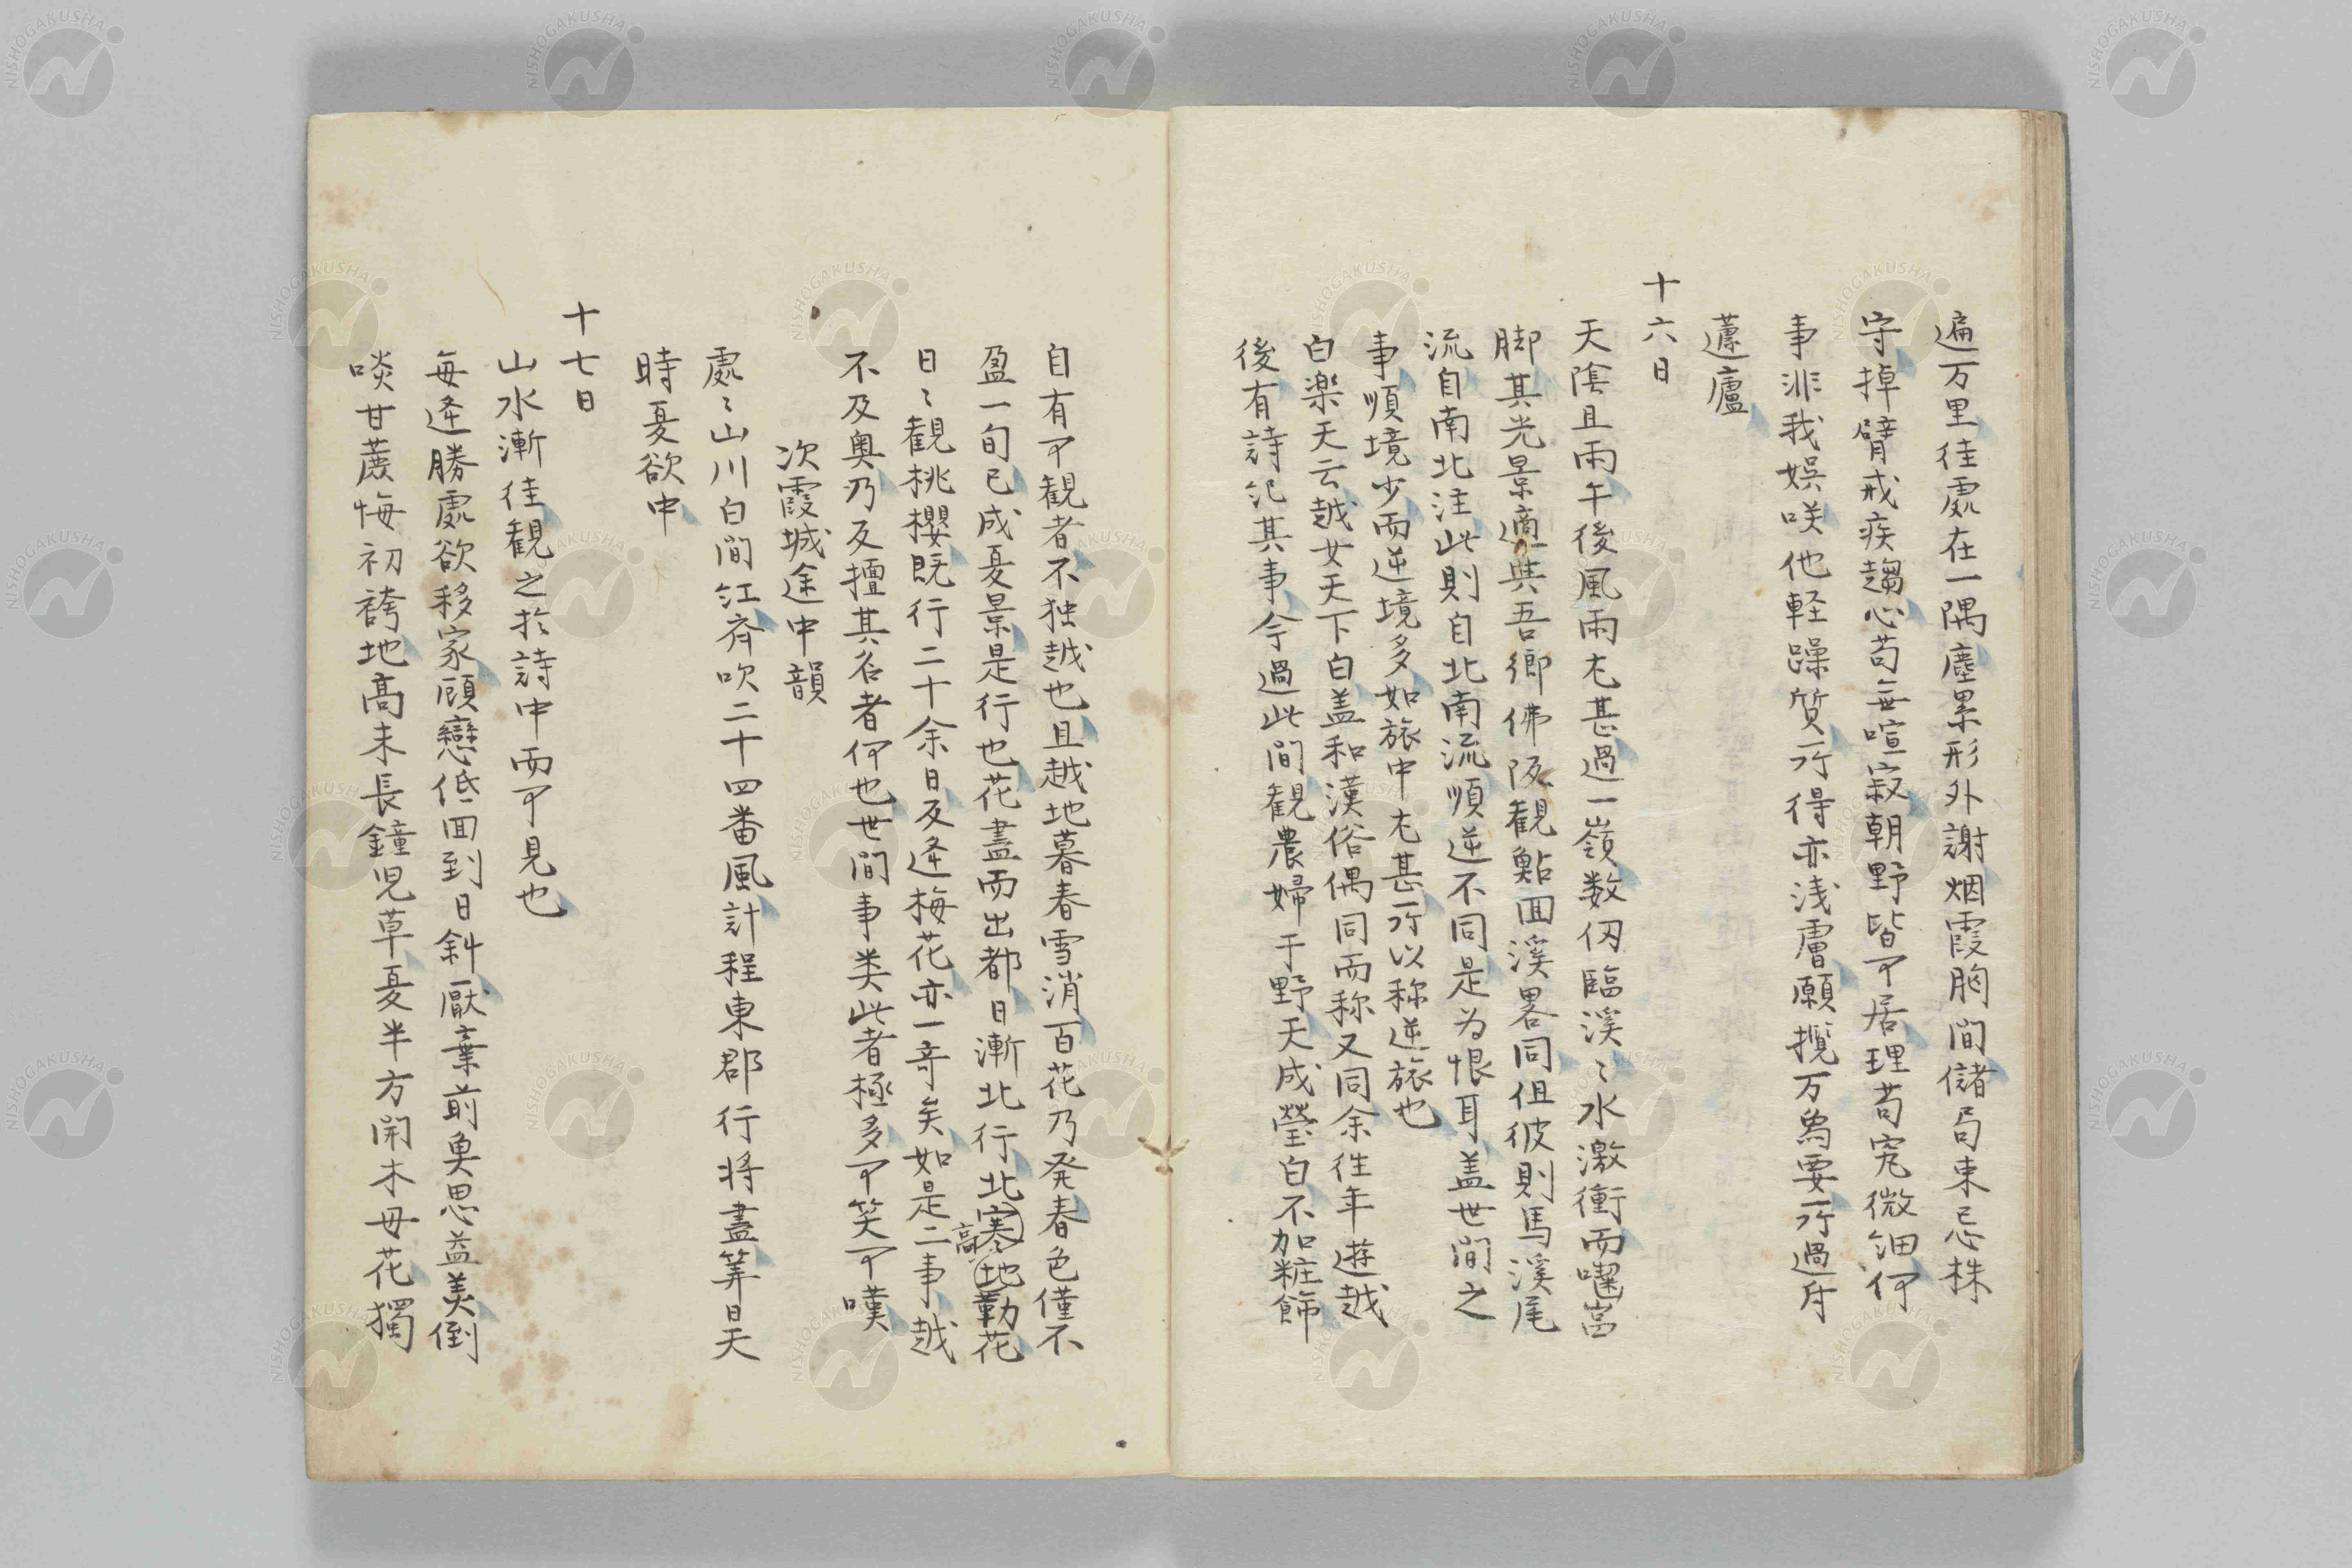 遍万里佳處在一隅塵累形外謝烟霞胸間儲局束忘株
守掉臂戒疾趨心苟無喧寂朝野皆可居理苟究微細何
事非我娯咲他軽躁質所得亦浅膚願攬万為要所過付
蘧廬
十六日
天陰且雨午後風雨尤甚過一嶺数仭臨溪〻水激衝而噛岩
脚其光景適與吾郷佛阪観鮎囬溪畧同但彼則馬溪尾
流自南北注此則自北南流順逆不同是为恨耳盖世間之
事順境少而逆境多如旅中尤甚所以称逆旅也
白楽天云越女天下白盖和漢俗偶同而称又同余往年遊越
後有詩記其事今過此間観農婦于野天成瑩白不加粧飾
自有可観者不独越也且越地暮春雪消百花乃発春色僅不
盈一旬已成夏景是行也花盡而出都日漸北行北寒高地勒花
日〻観桃櫻既行二十余日反逢梅花亦一奇矣如是二事越
不及奥乃反擅其名者何也世間事类此者極多可笑可嘆
次霞城途中韻
處〻山川白間紅齊吹二十四番風計程東郡行将盡筭日天
時夏欲中
十七日
山水漸佳観之於詩中而可見也
每逢勝處欲移家顧戀低囬到日斜厭棄前奥思益美倒
啖甘蔗悔初袴地高未長鐘児草夏半方開木母花獨
NISHOGAKUSHA